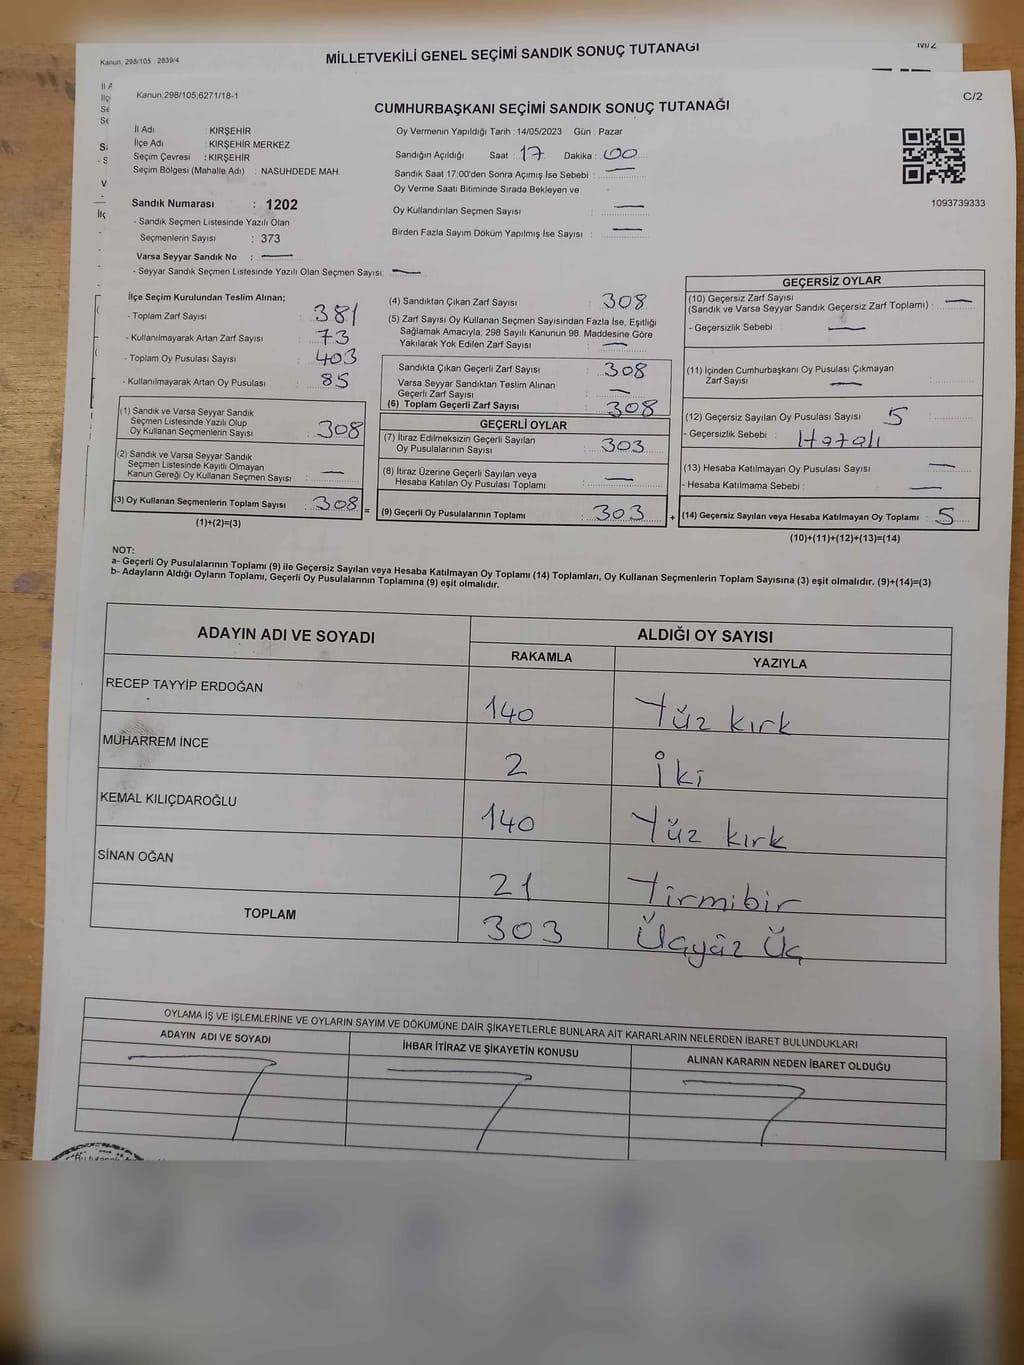 Kanun, 298/105, 2839/4
MİLLETVEKİLİ GENEL SEÇİMİ SANDIK SONUÇ TUTANAĞI
M/2
Kanun,298/105,6271/18-1
CUMHURBAŞKANI SEÇİMİ SANDIK SONUÇ TUTANAĞI
C/2
İl Adı : KIRŞEHİR
İlçe Adı : KIRŞEHİR MERKEZ
Seçim Çevresi : KIRŞEHİR
Seçim Bölgesi (Mahalle Adı) : NASUHDEDE MAH.
Sandık Numarası : 1202
- Sandık Seçmen Listesinde Yazılı Olan
Seçmenlerin Sayısı : 373
Varsa Seyyar Sandık No : —
- Seyyar Sandık Seçmen Listesinde Yazılı Olan Seçmen Sayısı: —
Oy Vermenin Yapıldığı Tarih : 14/05/2023 Gün : Pazar
Sandığın Açıldığı Saat : 17 Dakika : 00
Sandık Saat 17:00'den Sonra Açımış İse Sebebi : —
Oy Verme Saati Bitiminde Sırada Bekleyen ve
Oy Kullandırılan Seçmen Sayısı : —
Birden Fazla Sayım Döküm Yapılmış İse Sayısı : —
1093739333
İlçe Seçim Kurulundan Teslim Alınan;
- Toplam Zarf Sayısı : 381
- Kullanılmayarak Artan Zarf Sayısı : 73
- Toplam Oy Pusulası Sayısı : 403
- Kullanılmayarak Artan Oy Pusulası : 85
(1) Sandık ve Varsa Seyyar Sandık
Seçmen Listesinde Yazılı Olup
Oy Kullanan Seçmenlerin Sayısı : 308
(2) Sandık ve Varsa Seyyar Sandık
Seçmen Listesinde Kayıtlı Olmayan
Kanun Gereği Oy Kullanan Seçmen Sayısı : —
(3) Oy Kullanan Seçmenlerin Toplam Sayısı : 308 =
(1)+(2)=(3)
(4) Sandıktan Çıkan Zarf Sayısı : 308
(5) Zarf Sayısı Oy Kullanan Seçmen Sayısından Fazla İse, Eşitliği
Sağlamak Amacıyla, 298 Sayılı Kanunun 98. Maddesine Göre
Yakılarak Yok Edilen Zarf Sayısı : —
Sandıkta Çıkan Geçerli Zarf Sayısı : 308
Varsa Seyyar Sandıktan Teslim Alınan
Geçerli Zarf Sayısı : —
(6) Toplam Geçerli Zarf Sayısı : 308
GEÇERLİ OYLAR
(7) İtiraz Edilmeksizin Geçerli Sayılan
Oy Pusulalarının Sayısı : 303
(8) İtiraz Üzerine Geçerli Sayılan veya
Hesaba Katılan Oy Pusulası Toplamı : —
(9) Geçerli Oy Pusulalarının Toplamı : 303 +
GEÇERSİZ OYLAR
(10) Geçersiz Zarf Sayısı
(Sandık ve Varsa Seyyar Sandık Geçersiz Zarf Toplamı) : —
- Geçersizlik Sebebi : —
(11) İçinden Cumhurbaşkanı Oy Pusulası Çıkmayan
Zarf Sayısı : —
(12) Geçersiz Sayılan Oy Pusulası Sayısı : 5
- Geçersizlik Sebebi : Hatalı
(13) Hesaba Katılmayan Oy Pusulası Sayısı : —
- Hesaba Katılmama Sebebi : —
(14) Geçersiz Sayılan veya Hesaba Katılmayan Oy Toplamı : 5
(10)+(11)+(12)+(13)=(14)
NOT:
a- Geçerli Oy Pusulalarının Toplamı (9) ile Geçersiz Sayılan veya Hesaba Katılmayan Oy Toplamı (14) Toplamları, Oy Kullanan Seçmenlerin Toplam Sayısına (3) eşit olmalıdır. (9)+(14)=(3)
b- Adayların Aldığı Oyların Toplamı, Geçerli Oy Pusulalarının Toplamına (9) eşit olmalıdır.
ADAYIN ADI VE SOYADI ALDIĞI OY SAYISI
RAKAMLA YAZIYLA
RECEP TAYYİP ERDOĞAN 140 Yüz kırk
MUHARREM İNCE 2 İki
KEMAL KILIÇDAROĞLU 140 Yüz kırk
SİNAN OĞAN 21 Yirmibir
TOPLAM 303 Üçyüz Üç
OYLAMA İŞ VE İŞLEMLERİNE VE OYLARIN SAYIM VE DÖKÜMÜNE DAİR ŞİKAYETLERLE BUNLARA AİT KARARLARIN NELERDEN İBARET BULUNDUKLARI
ADAYIN ADI VE SOYADI İHBAR İTİRAZ VE ŞİKAYETİN KONUSU ALINAN KARARIN NEDEN İBARET OLDUĞU